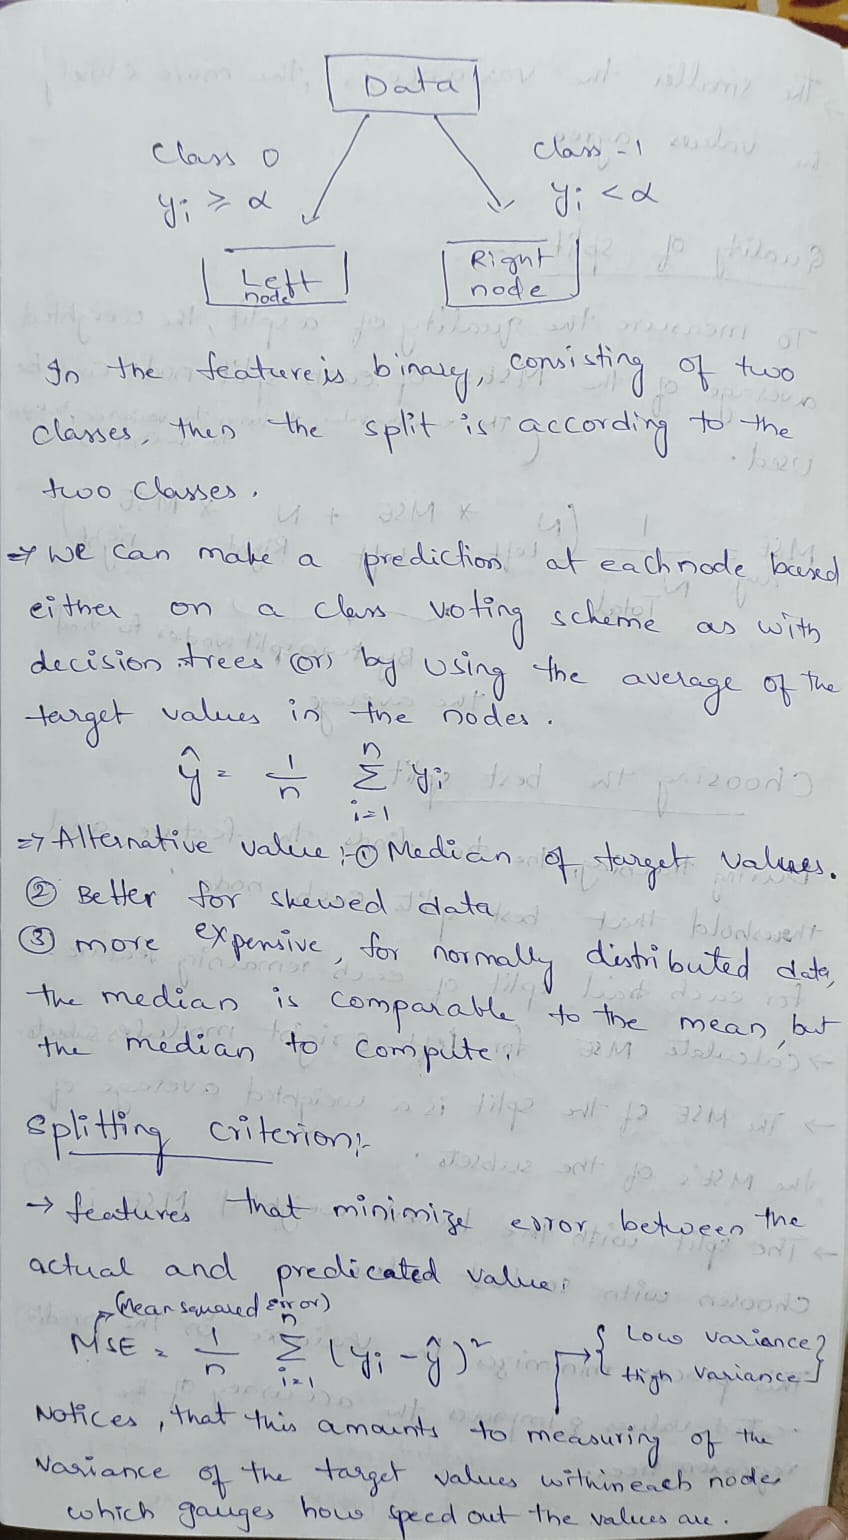 Data
Class 0
Class - 1
yᵢ ≥ α
yᵢ < α
Left
node
Right
node
In the feature is binary, consisting of two
classes, then the split is according to the
two classes.
⇒ We can make a prediction at each node based
either on a class voting scheme as with
decision trees (or) by using the average of the
target values in the nodes.
ŷ = 1/n Σⁿᵢ₌₁ yᵢ
⇒ Alternative value :- ① Median of target values.
② Better for skewed data
③ more expensive, for normally distributed data,
the median is comparable to the mean, but
the median to compute.
Splitting criterion:-
→ features that minimize error between the
actual and predicated value:
(Mean squared error)
MSE = 1/n Σⁿᵢ₌₁ (yᵢ - ŷ)²
{ Low variance }
{ High Variance }
Notices, that this amounts to measuring of the
Variance of the target values within each node
which gauges how speed out the values are.